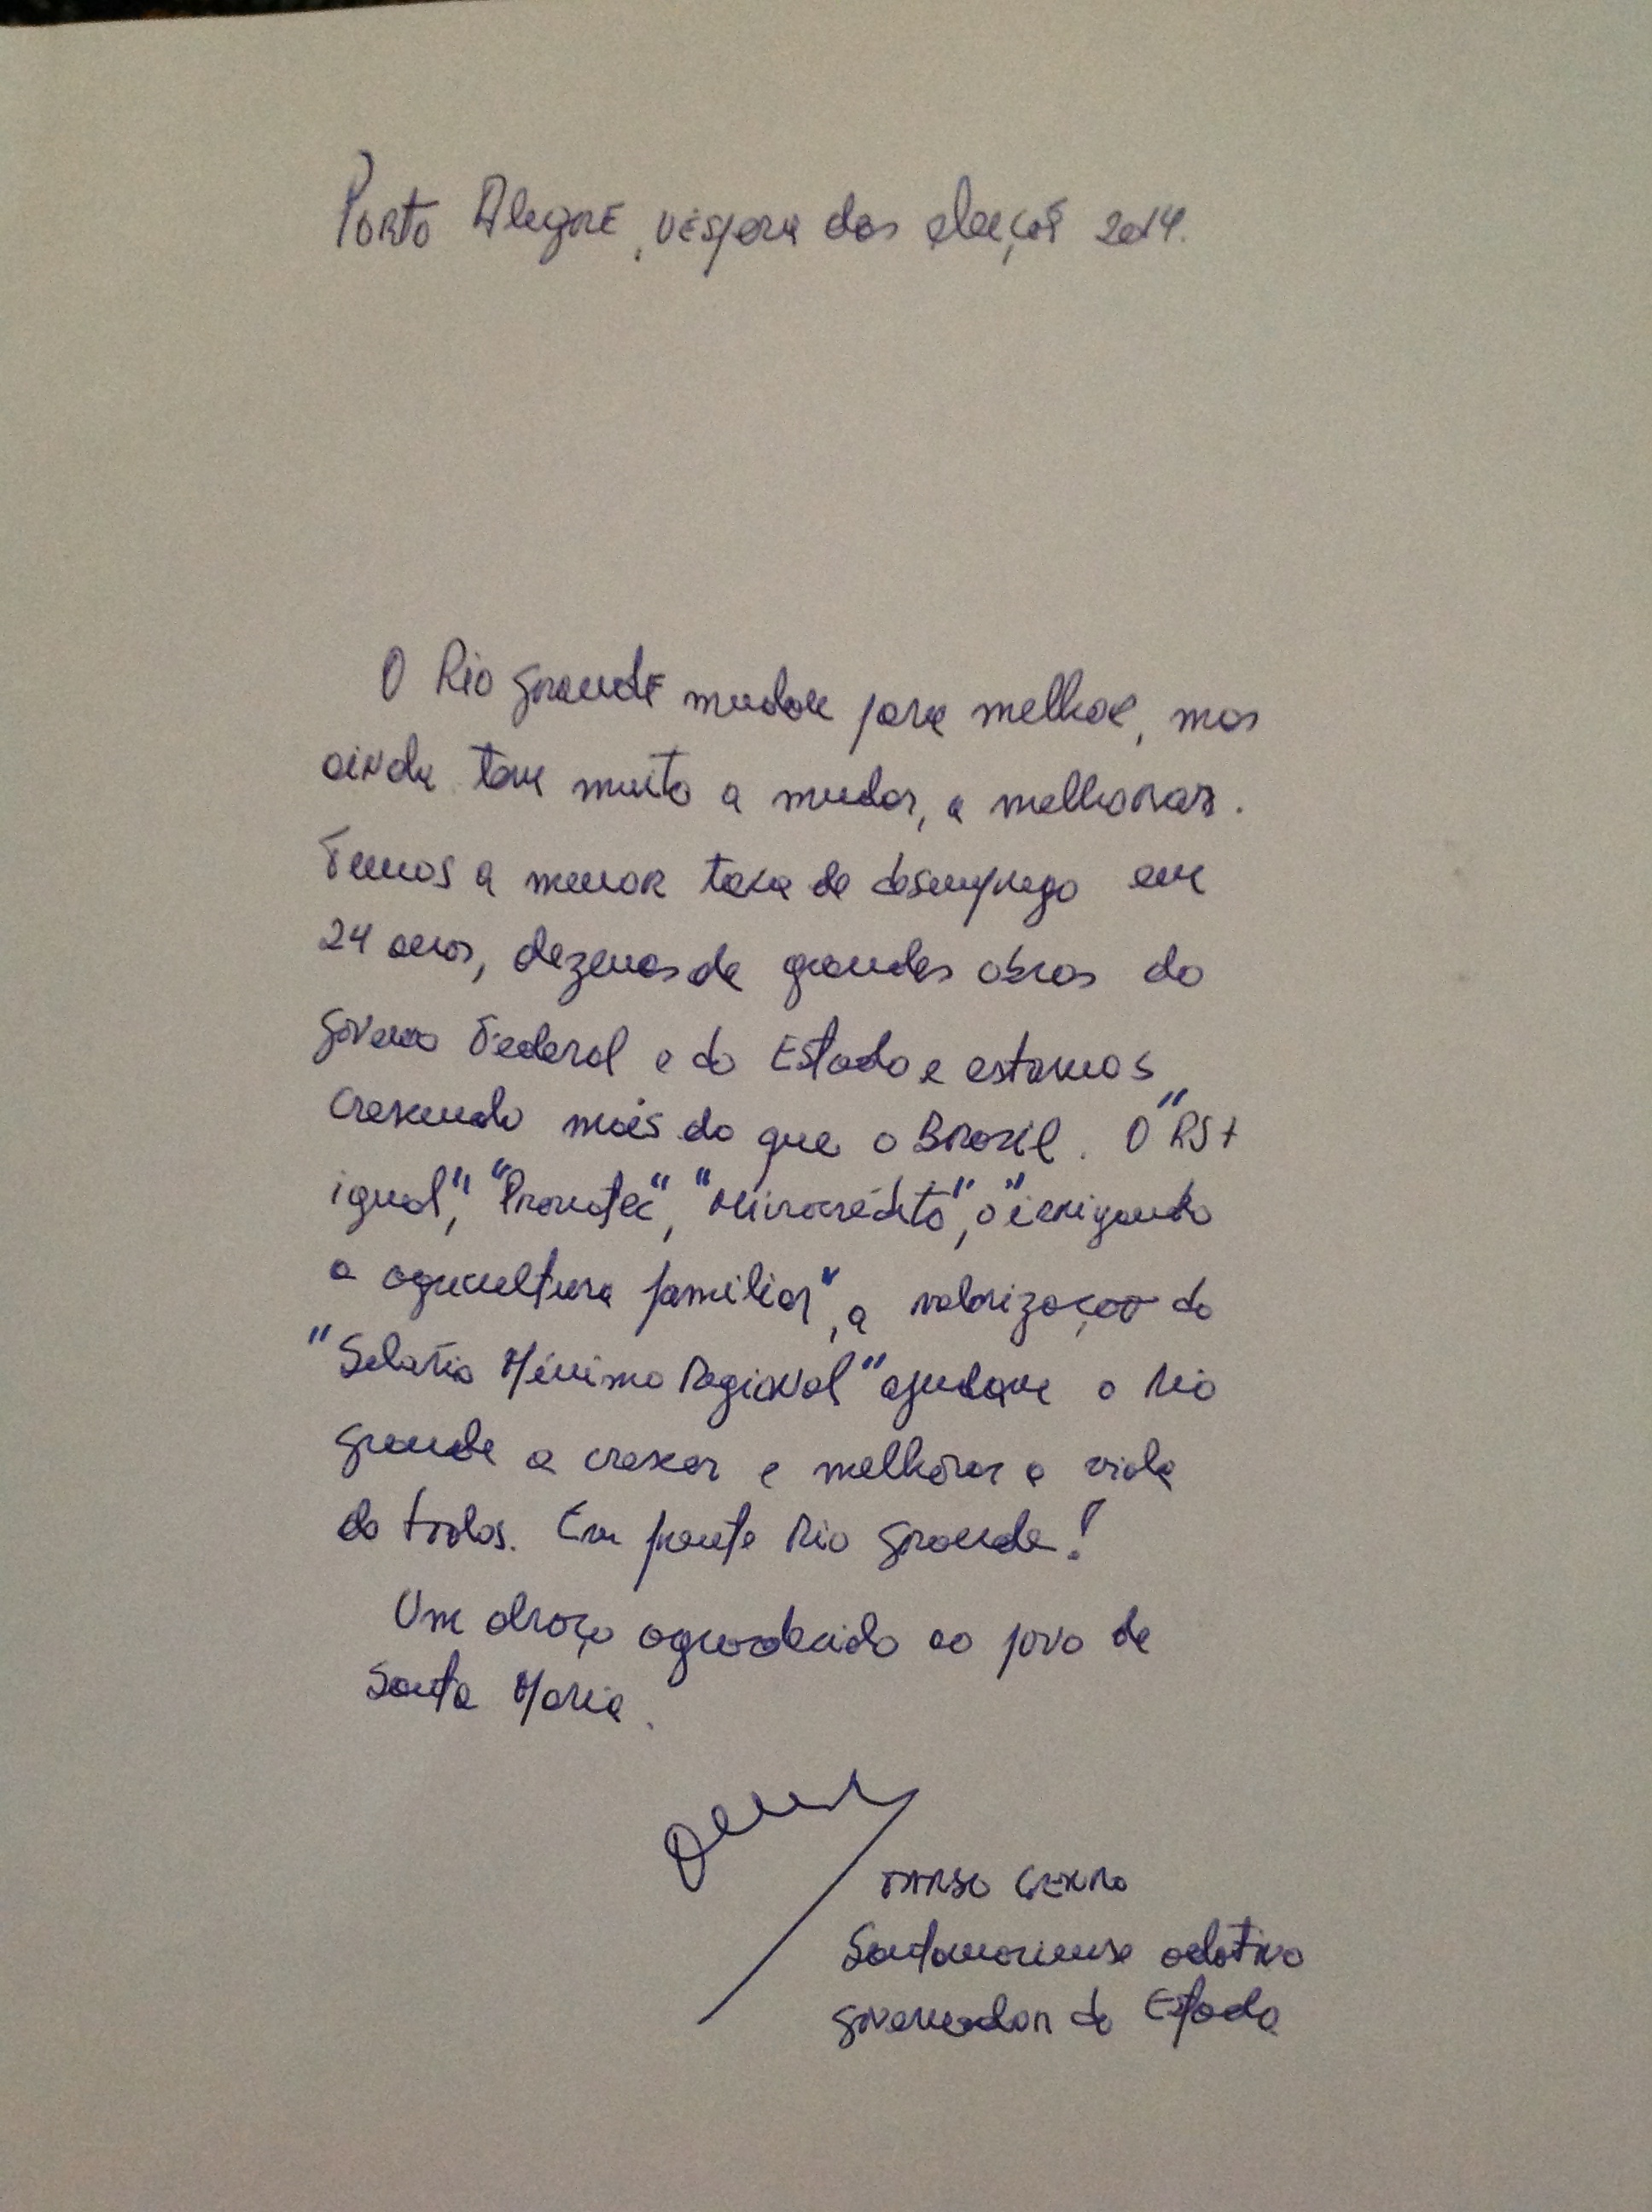 Porto Alegre, véspera das eleições 2014.
O Rio grande mudou para melhor, mas
ainda tem muito a mudar, a melhorar.
Temos a menor taxa de desemprego em
24 anos, dezenas de grandes obras do
governo Federal e do Estado e estamos
crescendo mais do que o Brasil. O "RS +
igual", "Pronatec", "Microcrédito", o "irrigando
a agricultura familiar", a valorização do
"Salário Mínimo Regional" ajudam o Rio
grande a crescer e melhorar a vida
de todos. Em frente Rio grande!
Um abraço agradecido ao povo de
Santa Maria.
TARSO GENRO
Santamariense adotivo
governador do Estado